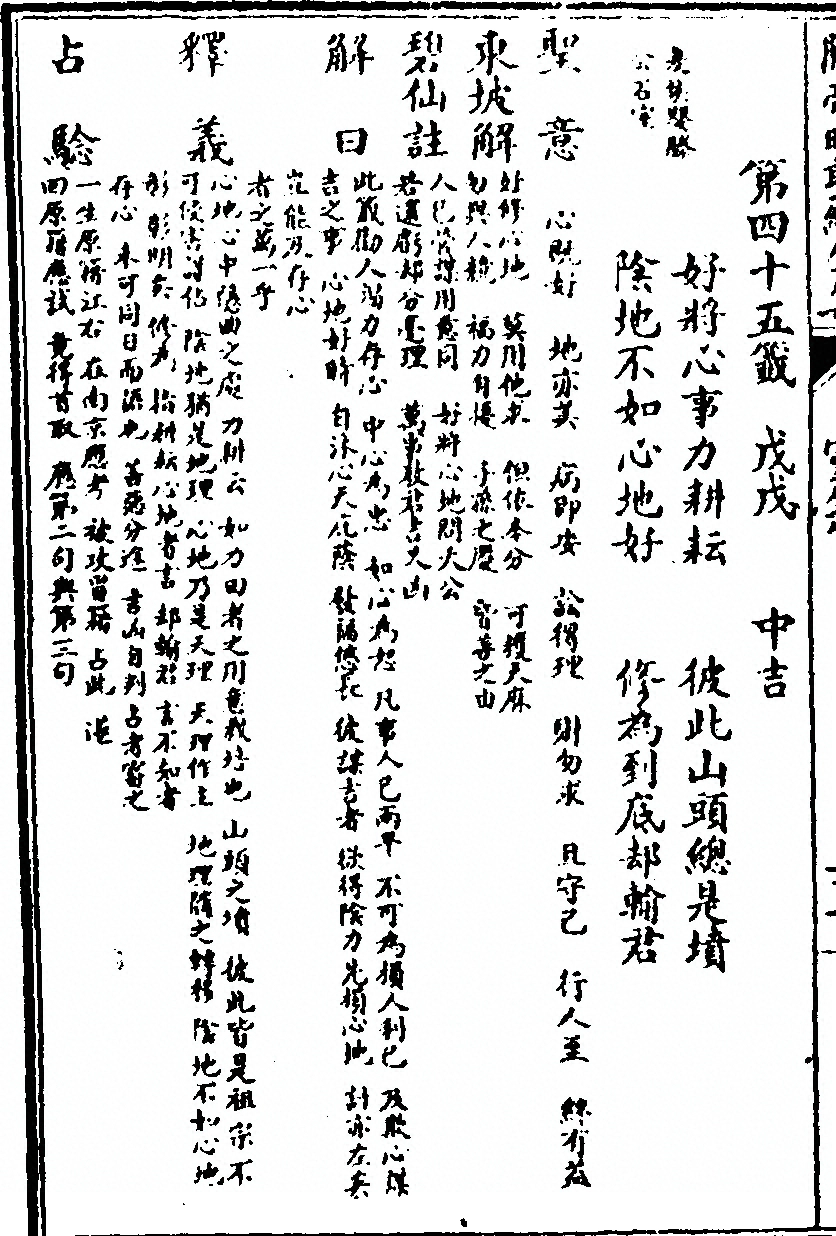 第四十五籤 戊戌 中吉
好將心事力耕耘 彼此山頭總是墳
陰地不如心地好 修為到底却輸君
聖意 心既好 地亦美 病即安 訟得理 財勿求 且守己 行人至 終有益
東坡解 好修心地 莫用他求 但依本分 可獲天庥
勿與人競 福力自優 子孫之慶 皆善之由
碧仙註 人己當謀用意同 好將心地問天公
若還虧却分毫理 萬事教君占大凶
解曰 此籤勸人竭力存心 中心為忠 如心為恕 凡事人己兩平 不可為損人利己 及欺心謀
吉之事 心地好時 自沐心天庇蔭 發福悠長 彼謀吉者 欲得陰力 先損心地 計亦左矣
豈能及存心
者之萬一乎
釋義 心地心中隱曲之處 力耕云 如力田者之用意栽培也 山頭之墳 彼此皆是祖宗 不
可侵害謀佔 陰地猶是地理 心地乃是天理 天理作主 地理隨之轉移 陰地不如心地
彰彰明矣 修為 指耕耘心地者言 却輸君 言不知者
存心 未可同日而語也 善惡分途 吉凶自判 占者審之
占驗 一生原籍江右 在南京應考 被攻冒籍 占此 遂
回原籍應試 竟得首取 應第二句與第三句